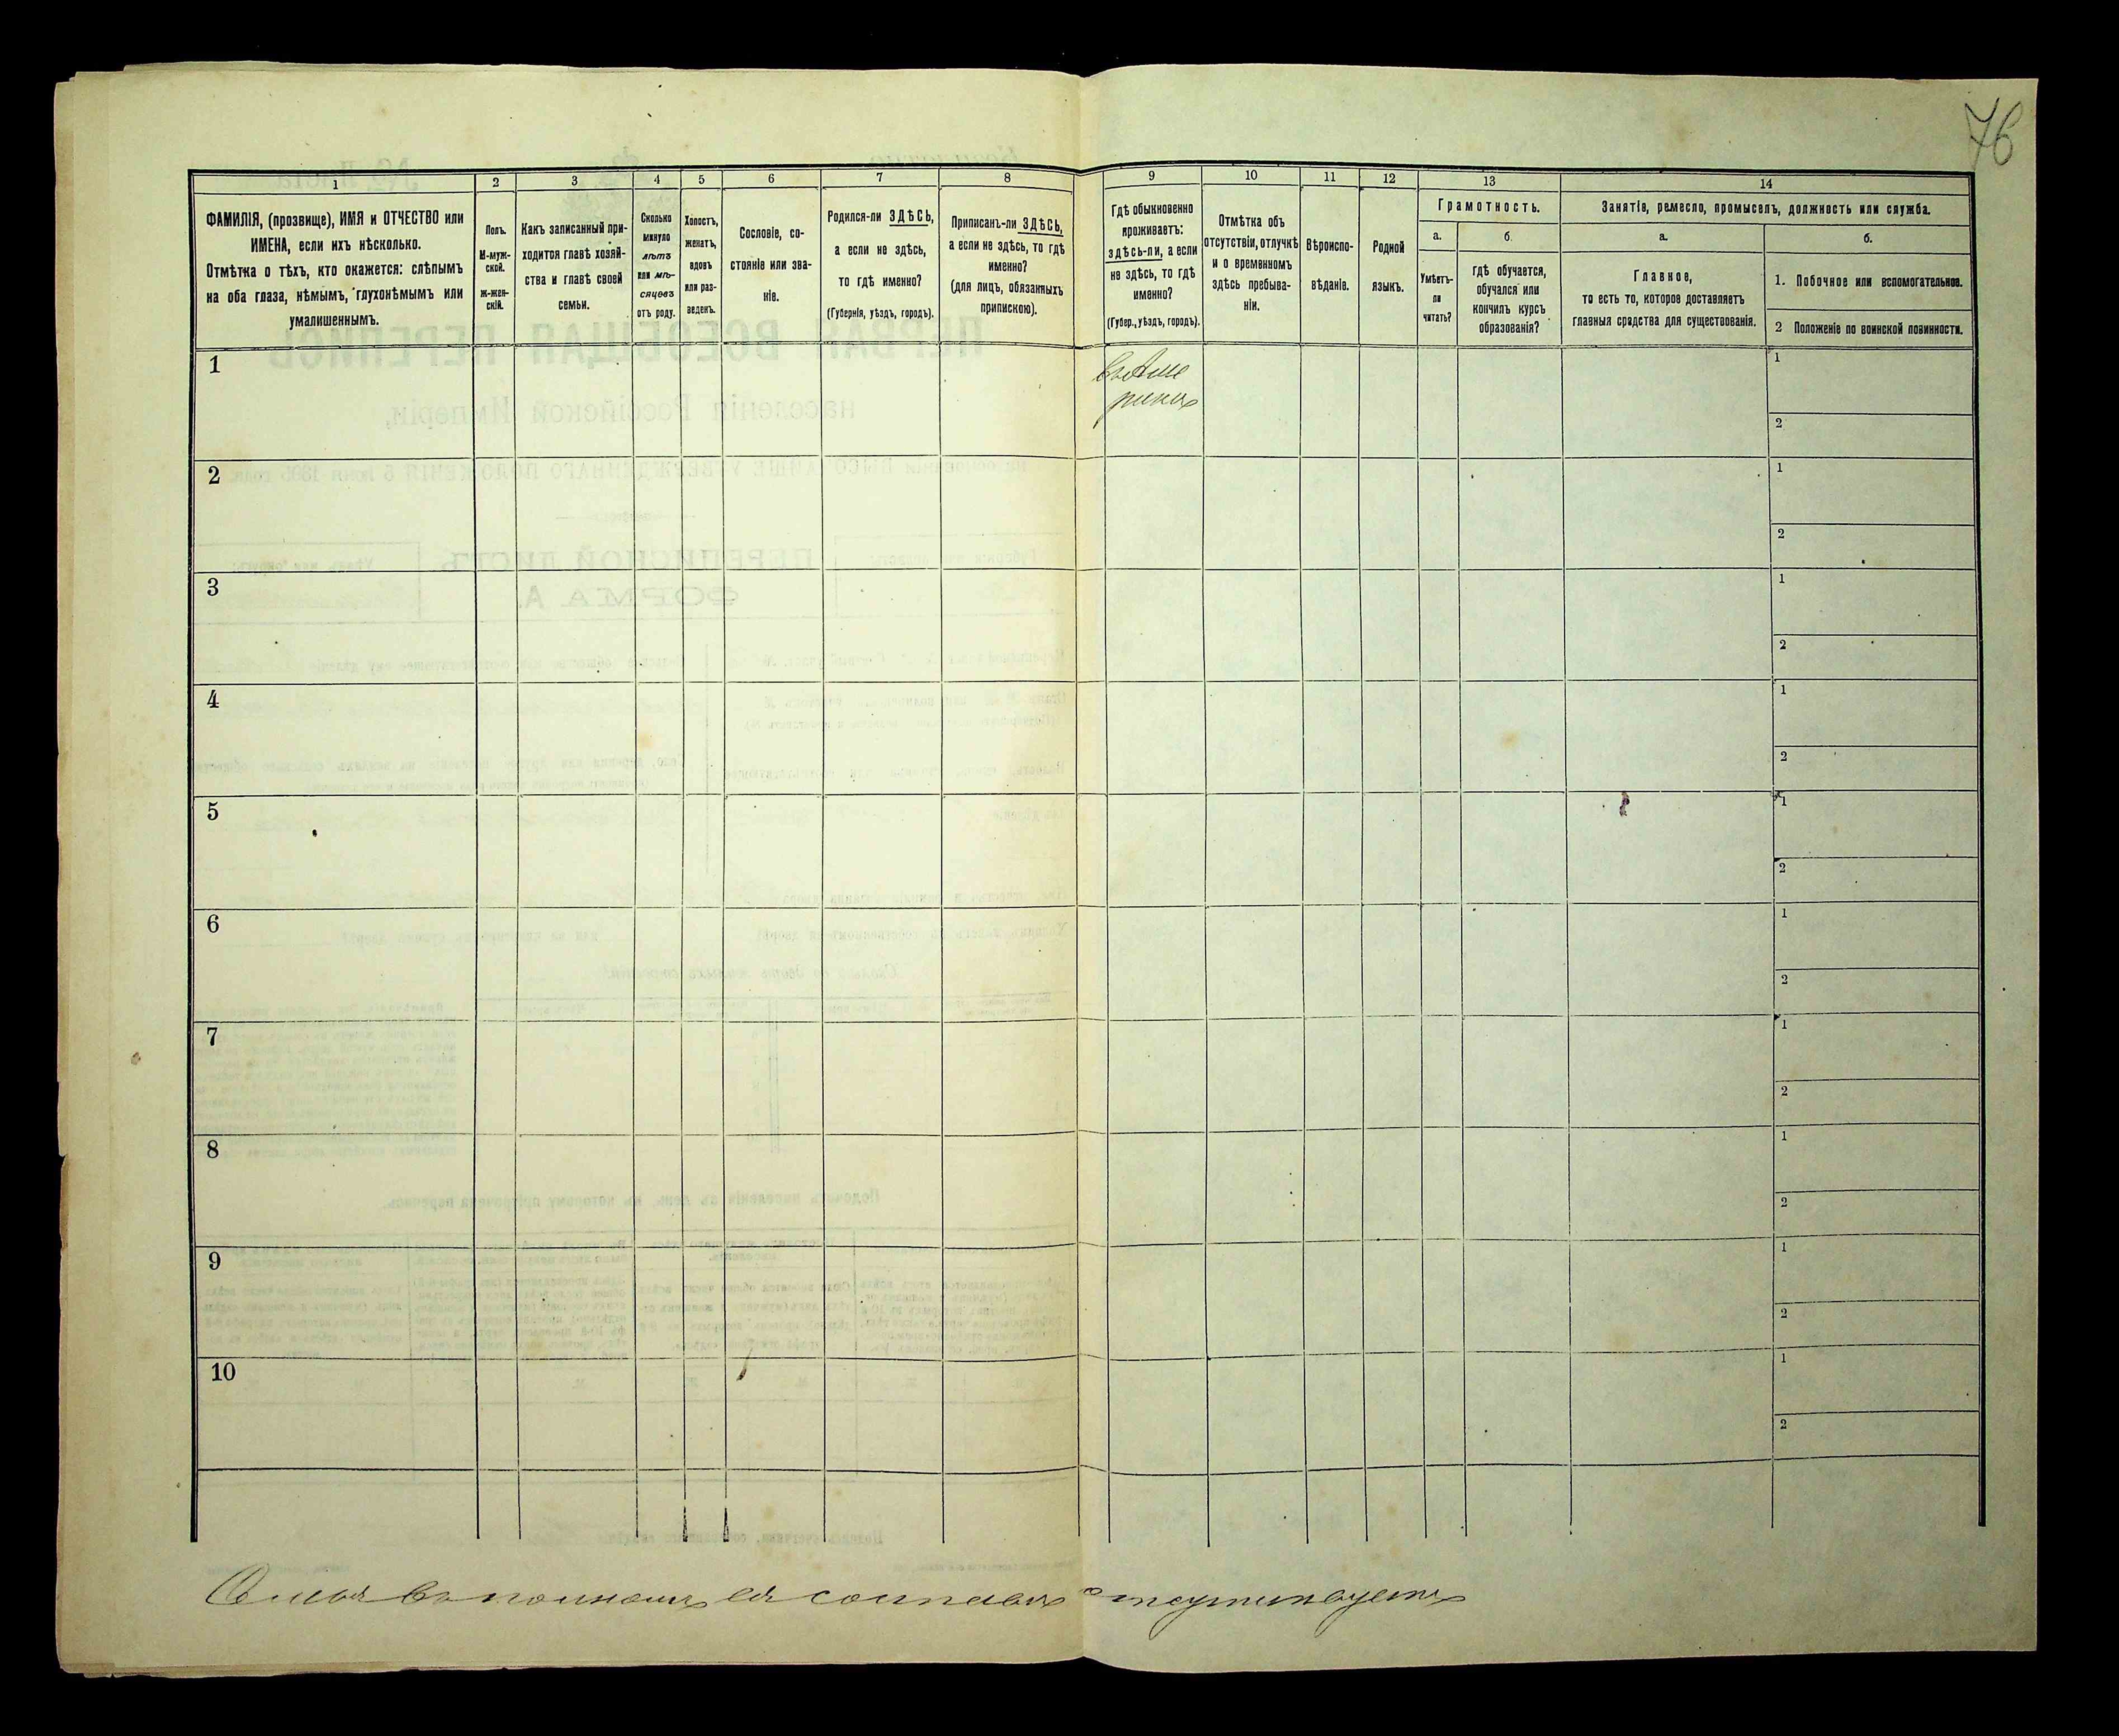 76
1
2
3
4
5
6
7
8
9
10
11
12
13
14
ФАМИЛІЯ, (прозвище), ИМЯ и ОТЧЕСТВО или
ИМЕНА, если ихъ нѣсколько.
Отмѣтка о тѣхъ, кто окажется: слѣпымъ
на оба глаза, нѣмымъ, глухонѣмымъ или
умалишеннымъ.
Полъ.
М-муж-
ской.
Ж-жен-
скій.
Какъ записанный при-
ходится главѣ хозяй-
ства и главѣ своей
семьи.
Сколько
минуло
лѣтъ
или мѣ-
сяцевъ
отъ роду.
Холостъ,
женатъ,
вдовъ
или раз-
веденъ.
Сословіе, со-
стояніе или зва-
ніе.
Родился-ли ЗДѢСЬ,
а если не здѣсь,
то гдѣ именно?
(Губернія, уѣздъ, городъ).
Приписанъ-ли ЗДѢСЬ,
а если не здѣсь, то гдѣ
именно?
(для лицъ, обязанныхъ
припискою).
Гдѣ обыкновенно
проживаетъ:
здѣсь-ли, а если
не здѣсь, то гдѣ
именно?
(Губер., уѣздъ, городъ).
Отмѣтка объ
отсутствіи, отлучкѣ
и о временномъ
здѣсь пребыва-
ніи.
Вѣроиспо-
вѣданіе.
Родной
языкъ.
Грамотность.
а.
Умѣетъ-
ли
читать?
б.
гдѣ обучается,
обучался или
кончилъ курсъ
образованія?
Занятіе, ремесло, промыселъ, должность или служба.
а.
Главное,
то есть то, которое доставляетъ
главныя средства для существованія.
б.
1. Побочное или вспомогательное.
2 Положеніе по воинской повинности.
1
въ Аме
рикѣ
1
2
2
1
2
3
1
2
4
1
2
5
1
2
6
1
2
7
1
2
8
1
2
9
1
2
10
1
2
Семья въ полномъ ея составѣ отсутствуетъ